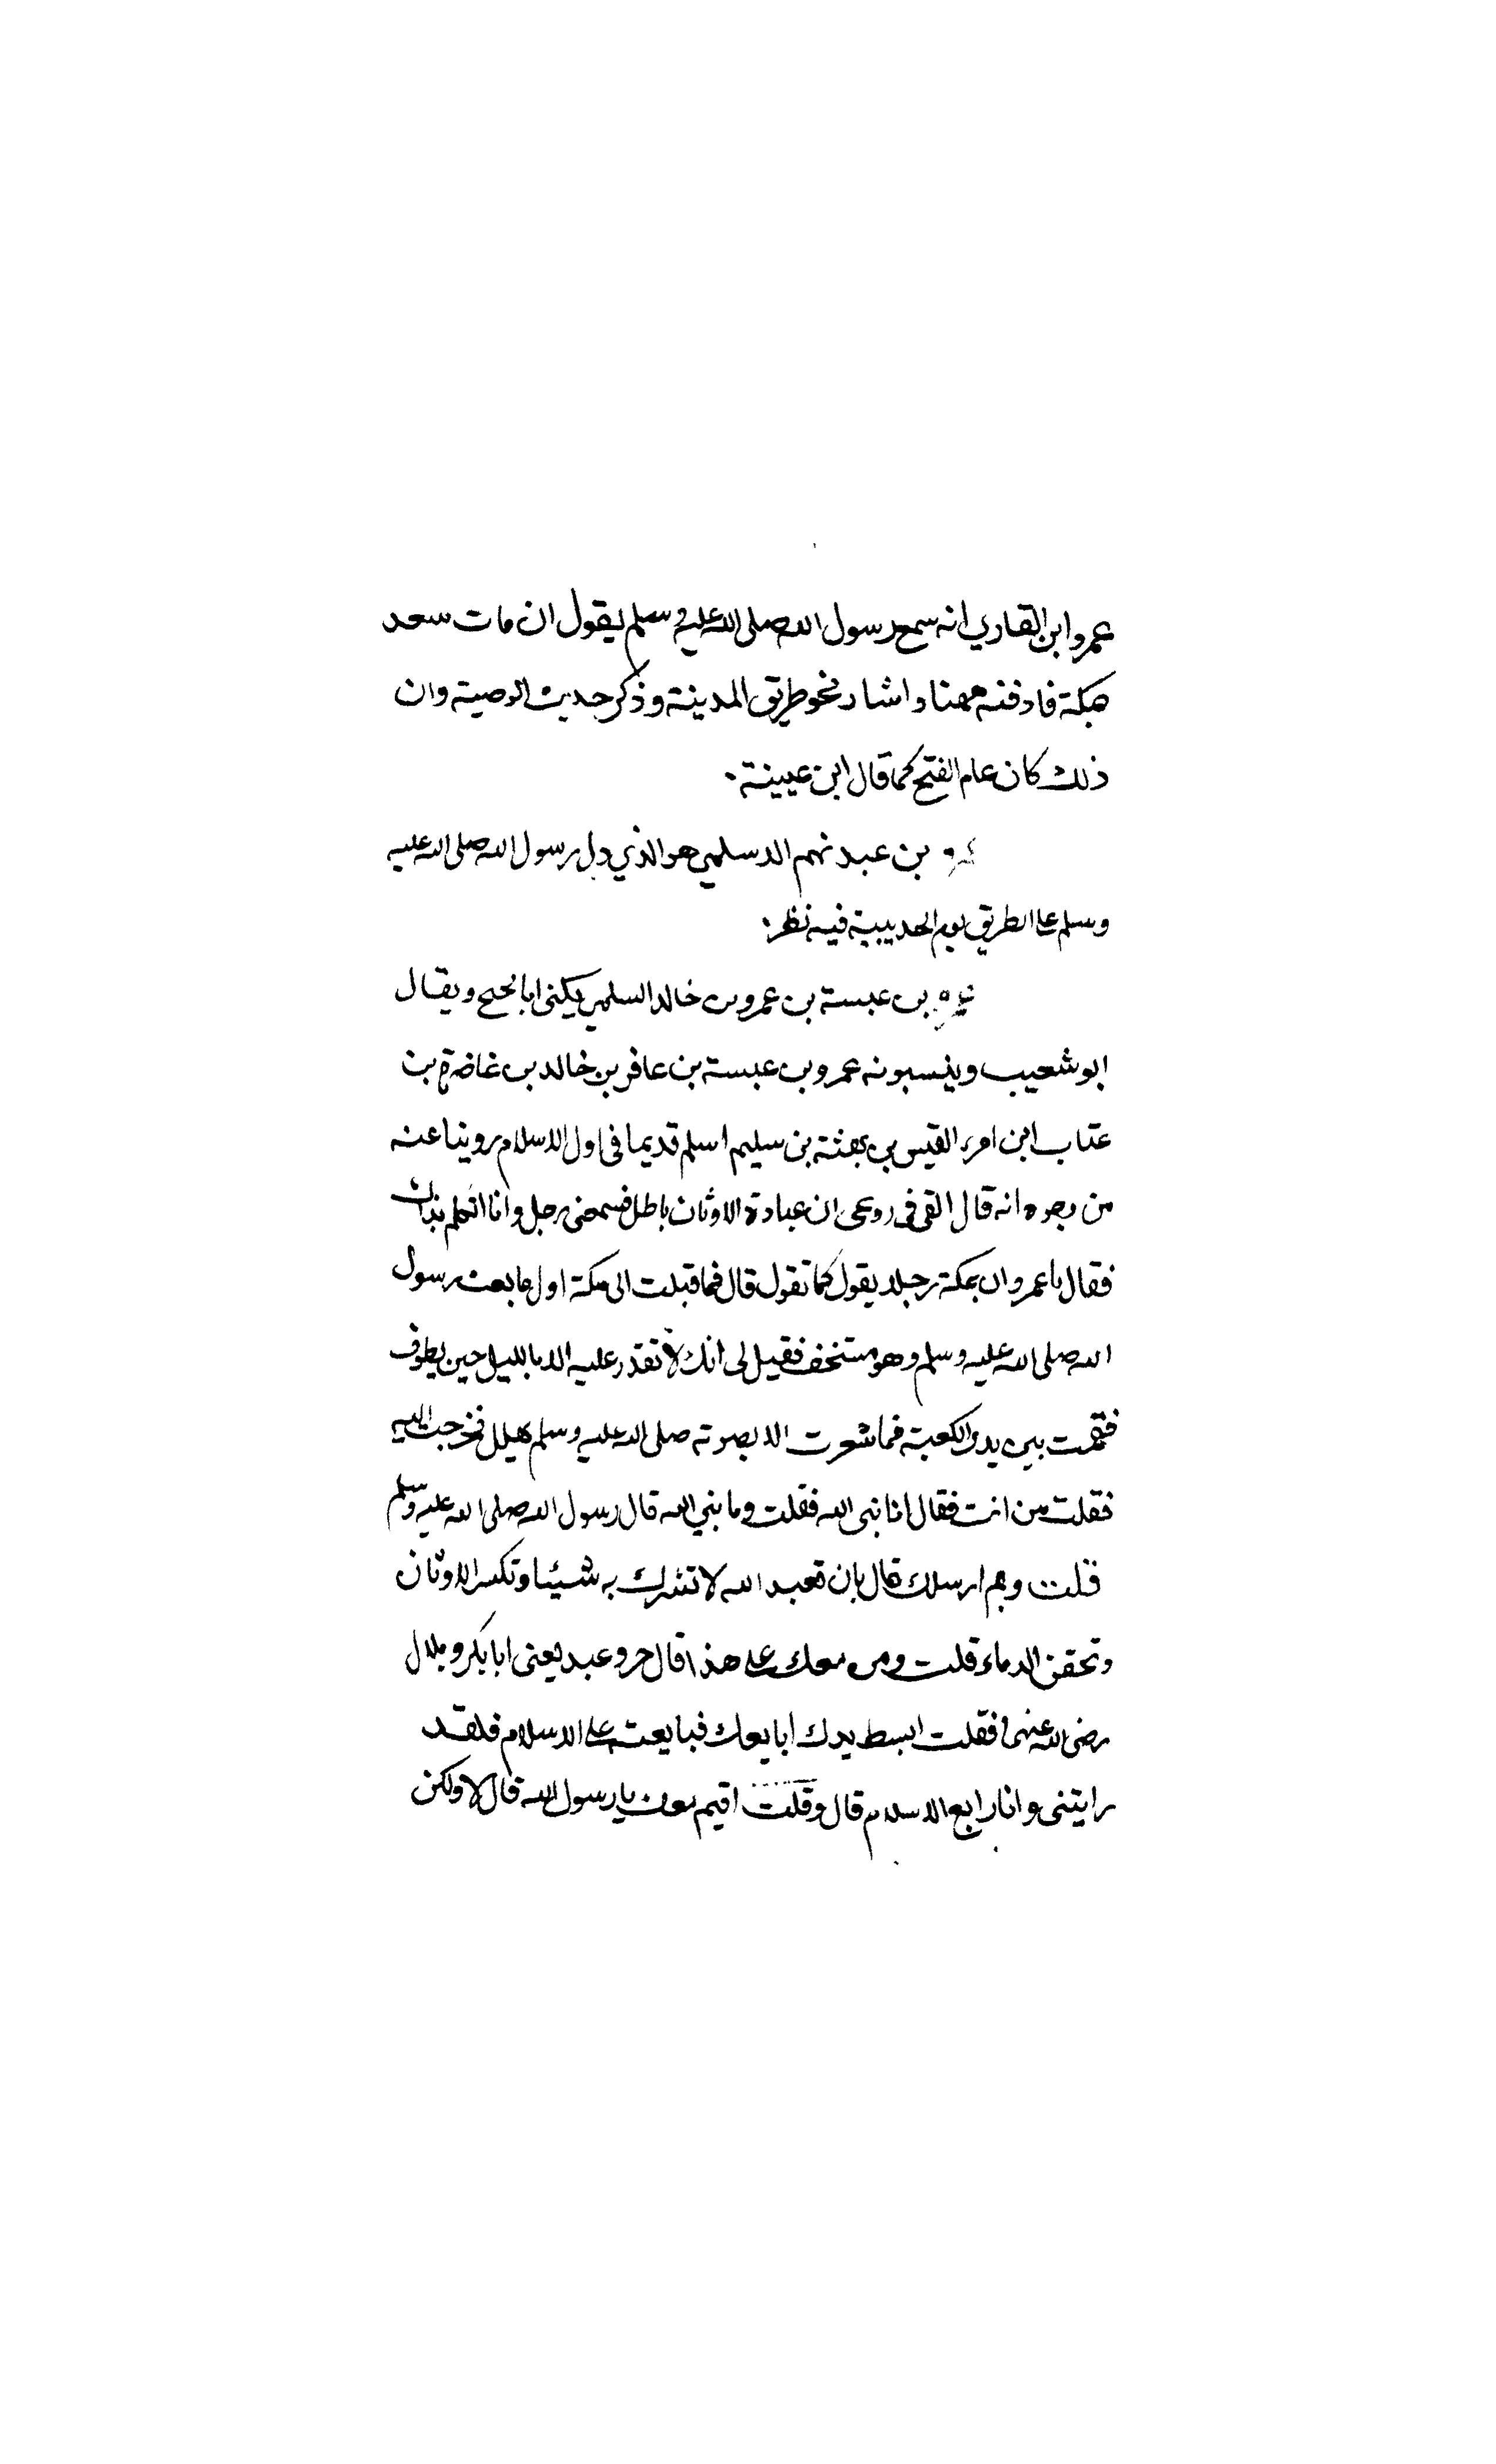 عمرو ابن القاري انه سمع رسول الله صلى الله عليه وسلم يقول ان مات سعد
بمكة فادفنه ههنا واشار نحو طريق المدينة وذكر حديث الوصية وان
ذلك كان عام الفتح كما قال ابن عيينة.
بن عبد نهم الاسلمي هو الذي دل رسول الله صلى الله عليه
وسلم على الطريق يوم الحديبية فيه نظر.
بن عبسة بن عمرو بن خالد السلمي يكنى ابا نجيح ويقال
ابو شعيب وينسبونه عمرو بن عبسة بن عامر بن خالد بن غاضرة بن
عتاب ابن امرء القيس بن بهثة بن سليم اسلم قديما في اول الاسلام روينا عنه
من وجوه انه قال القي في روعي ان عبادة الاوثان باطل فسمعني رجل وانا اتكلم بذلك
فقال يا عمرو ان بمكة رجلا يقول كما تقول قال فاقبلت الى مكة اول ما بعث رسول
الله صلى الله عليه وسلم وهو مستخف فقيل لي انك لا تقدر عليه الا بالليل حين يطوف
فقمت بين يدي الكعبة فما شعرت الا بصوته صلى الله عليه وسلم يهلل فخرجت اليه
فقلت من انت فقال انا نبي الله فقلت وما نبي الله قال رسول الله صلى الله عليه وسلم
قلت وبم ارسلك قال بان تعبد الله لا تشرك به شيئا وتكسر الاوثان
وتحقن الدماء قلت ومن معك على هذا قال حر وعبد يعني ابا بكر وبلال
رضي الله عنهما فقلت ابسط يدك ابايعك فبايعته على الاسلام فلقد
رايتني وانا رابع الاسلام قال وقلت اقيم معك يا رسول الله قال لا ولكن